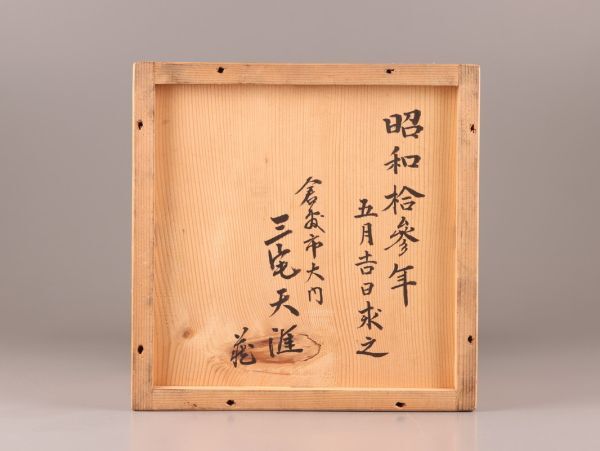 昭和拾參年
五月吉日求之
倉敷市大門
三宅天涯
蔵